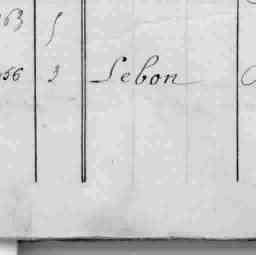 63 5
56 3 Lebon